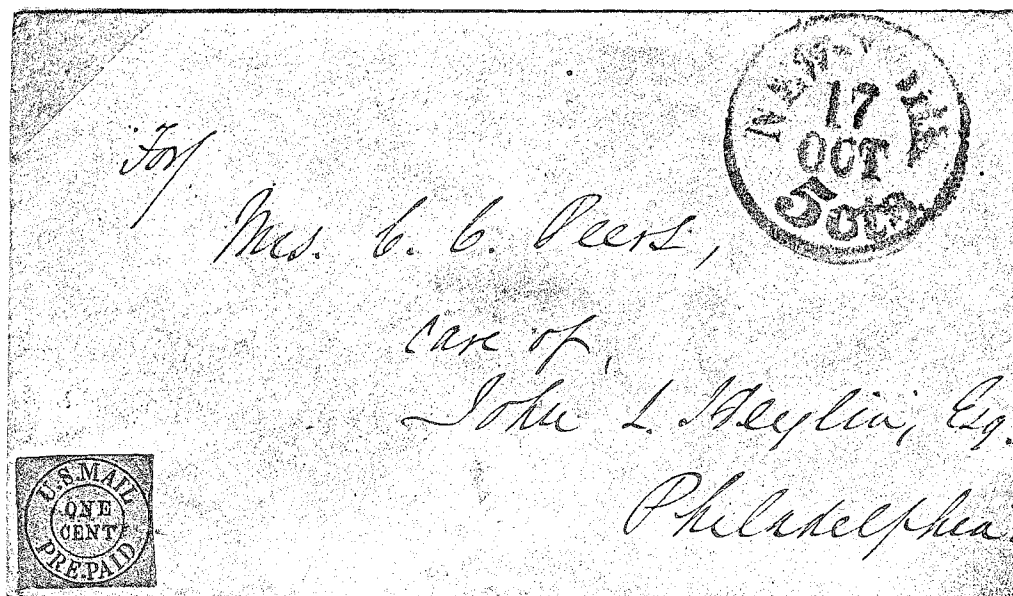 NEW-YORK
17
OCT
5 cts
For
Mrs. C. C. Peers,
care of,
John L. Heylin, Esq.
Philadelphia.
U.S. MAIL
ONE
CENT
PRE-PAID